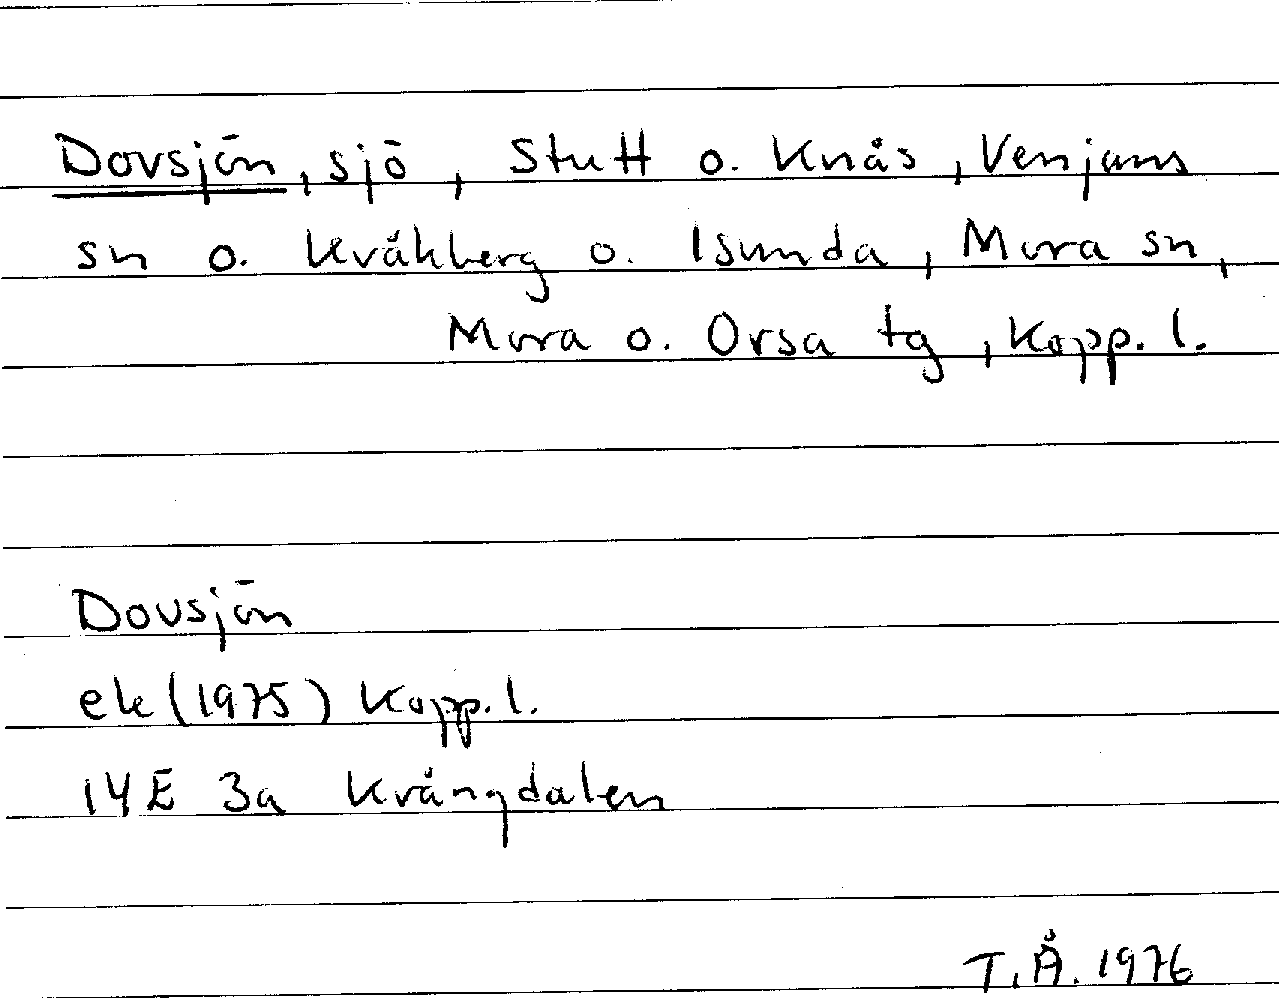 Dovsjön, sjö, Stutt o. Knås, Venjans
sn o. Kråkberg o. Isunda, Mora sn,
Mora o. Orsa tg, Kopp. l.
Dovsjön
ek (1975) Kopp. l.
14E 3a Kvångdalen
T.Å. 1976